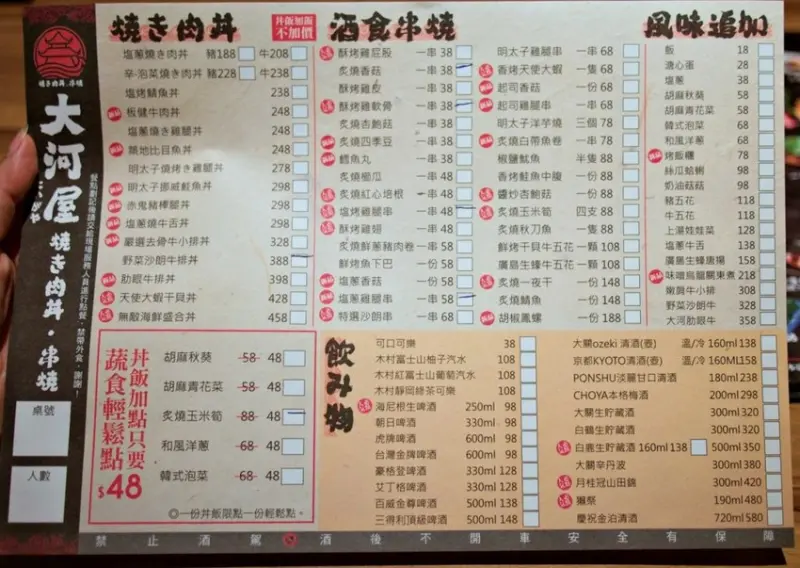 焼き肉丼.串燒
大河屋
燒き肉丼・串燒
餐點劃記後請交給現場服務人員進行點餐，禁帶外食，謝謝！
桌號
人數
燒き肉丼
丼飯加飯
不加價
塩蔥燒き肉丼 豬188 牛208
辛.泡菜燒き肉丼 豬228 牛238
塩烤鯖魚丼 238
板健牛肉丼 248
塩蔥燒き雞腿丼 248
類地比目魚丼 248
明太子燒烤き雞腿丼 278
明太子挪威鮭魚丼 298
赤鬼豬樓腿丼 298
塩蔥燒牛舌丼 298
嚴選去骨牛小排丼 328
野菜沙朗牛排丼 388
肋眼牛排丼 398
天使大蝦干貝丼 428
無敵海鮮盛合丼 458
酒食串燒
酥烤雞屁股 一串 38
炙燒香菇 一串 38
酥烤雞皮 一串 38
酥烤雞軟骨 一串 38
炙燒杏鮑菇 一串 38
炙燒四季豆 一串 38
鱈魚丸 一串 38
炙燒櫛瓜 一串 48
炙燒紅心培根 一串 48
塩烤雞腿串 一串 48
酥烤雞翅 一串 48
炙燒鮮蔥豬肉卷 一串 58
鮮烤魚下巴 一份 58
塩蔥香菇 一份 58
塩蔥雞腿串 一串 58
特選沙朗串 一串 68
明太子雞腿串 一串 68
香烤天使大蝦 一隻 68
起司香菇 一份 68
起司雞腿串 一串 68
明太子洋芋燒 三個 78
炙燒白帶魚卷 一串 78
椒鹽魷魚 半隻 88
香烤鮭魚中腹 一份 88
醬炒杏鮑菇 一份 88
炙燒玉米筍 四支 88
炙燒秋刀魚 一隻 88
鮮烤干貝牛五花 一顆 108
廣島生蠔牛五花 一顆 108
炙燒一夜干 一隻 148
炙燒鯖魚 一份 148
胡椒鳳螺 一份 188
風味追加
飯 18
溏心蛋 28
塩蔥 38
胡麻秋葵 58
胡麻青花菜 58
韓式泡菜 68
和風洋蔥 68
烤飯糰 78
絲瓜蛤蜊 98
奶油菇菇 98
豬五花 118
牛五花 118
上湯娃娃菜 128
塩蔥牛舌 138
廣島生蠔唐揚 158
味噌烏龍關東煮 218
嫩肩牛小排 308
野菜沙朗牛 328
大河肋眼牛 358
丼飯加點只要
蔬食輕鬆點
$48
胡麻秋葵 58 48
胡麻青花菜 58 48
炙燒玉米筍 88 48
和風洋蔥 68 48
韓式泡菜 68 48
◎一份丼飯限點一份輕鬆點。
飲み物
可口可樂 38
木村富士山柚子汽水 108
木村紅富士山葡萄汽水 108
木村靜岡綠茶可樂 108
海尼根生啤酒 250ml 98
朝日啤酒 330ml 98
虎牌啤酒 600ml 98
台灣金牌啤酒 600ml 98
豪格登啤酒 330ml 128
艾丁格啤酒 330ml 128
百威金尊啤酒 500ml 138
三得利頂級啤酒 500ml 148
大關ozeki 清酒(壺) 溫/冷 160ml 138
京都KYOTO清酒(壺) 溫/冷 160Ml 158
PONSHU淡麗甘口清酒 180ml 238
CHOYA本格梅酒 200ml 298
大關生貯藏酒 300ml 320
白鶴生貯藏酒 300ml 320
白鹿生貯藏酒 160ml 138 500ml 350
大關辛丹波 300ml 380
月桂冠山田錦 300ml 420
獺祭 190ml 480
慶祝金泊清酒 720ml 580
禁止酒駕 酒後不開車安全有保障